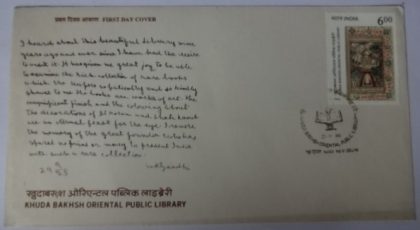 प्रथम दिवस आवरण FIRST DAY COVER
I heard about this beautiful library nine
years ago and ever since I have had the desire
to visit it. It has given me great joy to be able
to examine the rich collection of rare books
which the keepers so patiently and so kindly
showed to me. The books are works of art. The
magnificent finish and the colouring about
the decorations of the Koran and Shah Nama
are an eternal feast for the eye. I revere
the memory of the great founder who has
spared no pains or money to present India
with such a rare collection.
MKGandhi
भारत INDIA
6.00
KHUDA BAKHSH ORIENTAL PUBLIC LIBRARY
NEW DELHI
खुदाबख़्श ओरिएन्टल पब्लिक लाइब्रेरी
KHUDA BAKHSH ORIENTAL PUBLIC LIBRARY